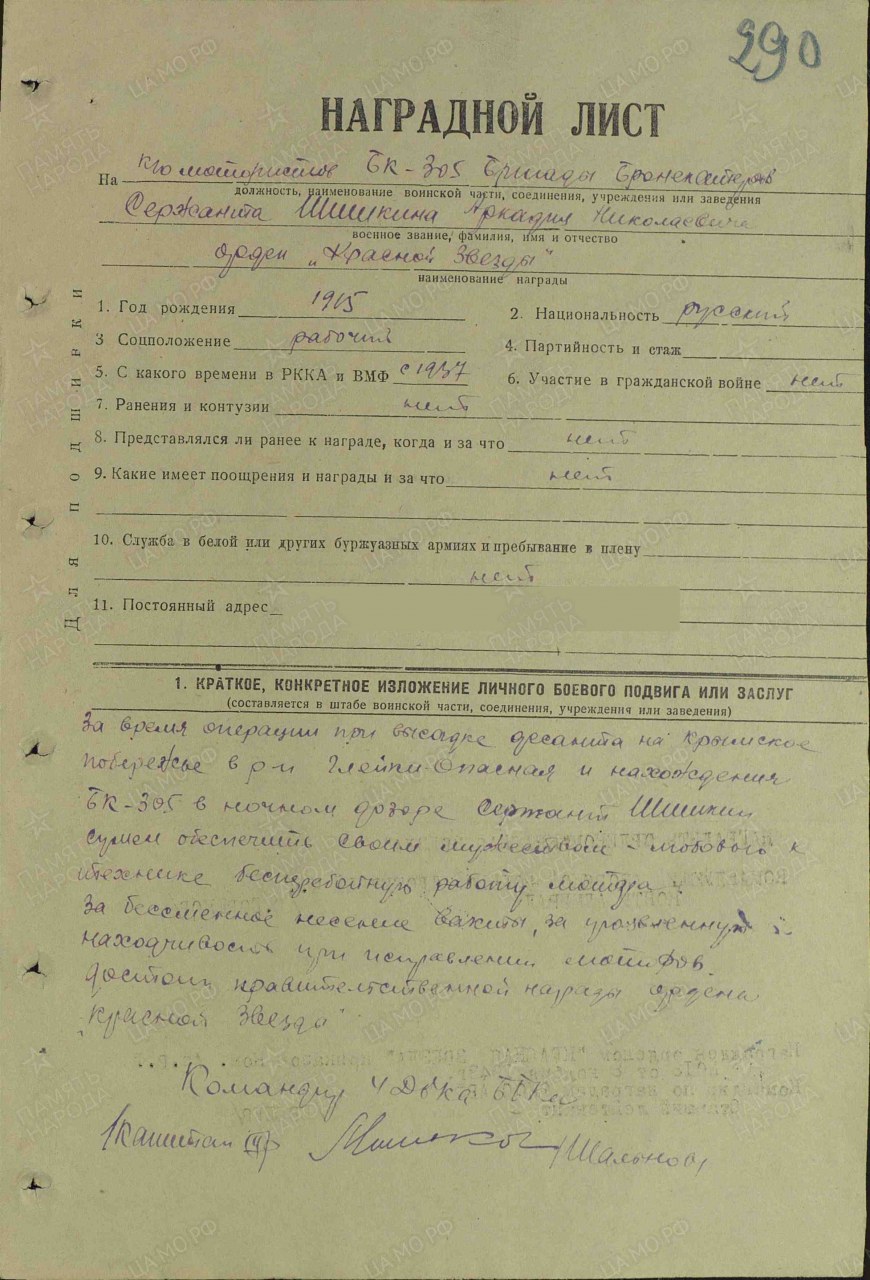 290
НАГРАДНОЙ ЛИСТ
На к-ю мотористов БК-305 Бригады Бронекатеров
должность, наименование воинской части, соединения, учреждения или заведения
Сержанта Шишкина Аркадия Николаевича
военное звание, фамилия, имя и отчество
орден „Красной Звезды"
наименование награды
1. Год рождения 1915
2. Национальность русский
3 Соцположение рабочий
4. Партийность и стаж
5. С какого времени в РККА и ВМФ с 1937
6. Участие в гражданской войне нет
7. Ранения и контузии нет
8. Представлялся ли ранее к награде, когда и за что нет
9. Какие имеет поощрения и награды и за что нет
10. Служба в белой или других буржуазных армиях и пребывание в плену
нет
11. Постоянный адрес
Для подшивки
1. КРАТКОЕ, КОНКРЕТНОЕ ИЗЛОЖЕНИЕ ЛИЧНОГО БОЕВОГО ПОДВИГА ИЛИ ЗАСЛУГ
(составляется в штабе воинской части, соединения, учреждения или заведения)
За время операции при высадке десанта на Крымское
побережье в р-н Глейки-Опасная и нахождения
БК-305 в ночном дозоре Сержант Шишкин
сумел обеспечить своим мужеством - любовью к
технике бесперебойную работу мотора
За бессменное несение вахты, за проявленную
находчивость при исправлении моторов
достоин правительственной награды ордена
"Красной Звезда"
Командир 4 Д-ка ББКа
/капитан III р /Шаманов/